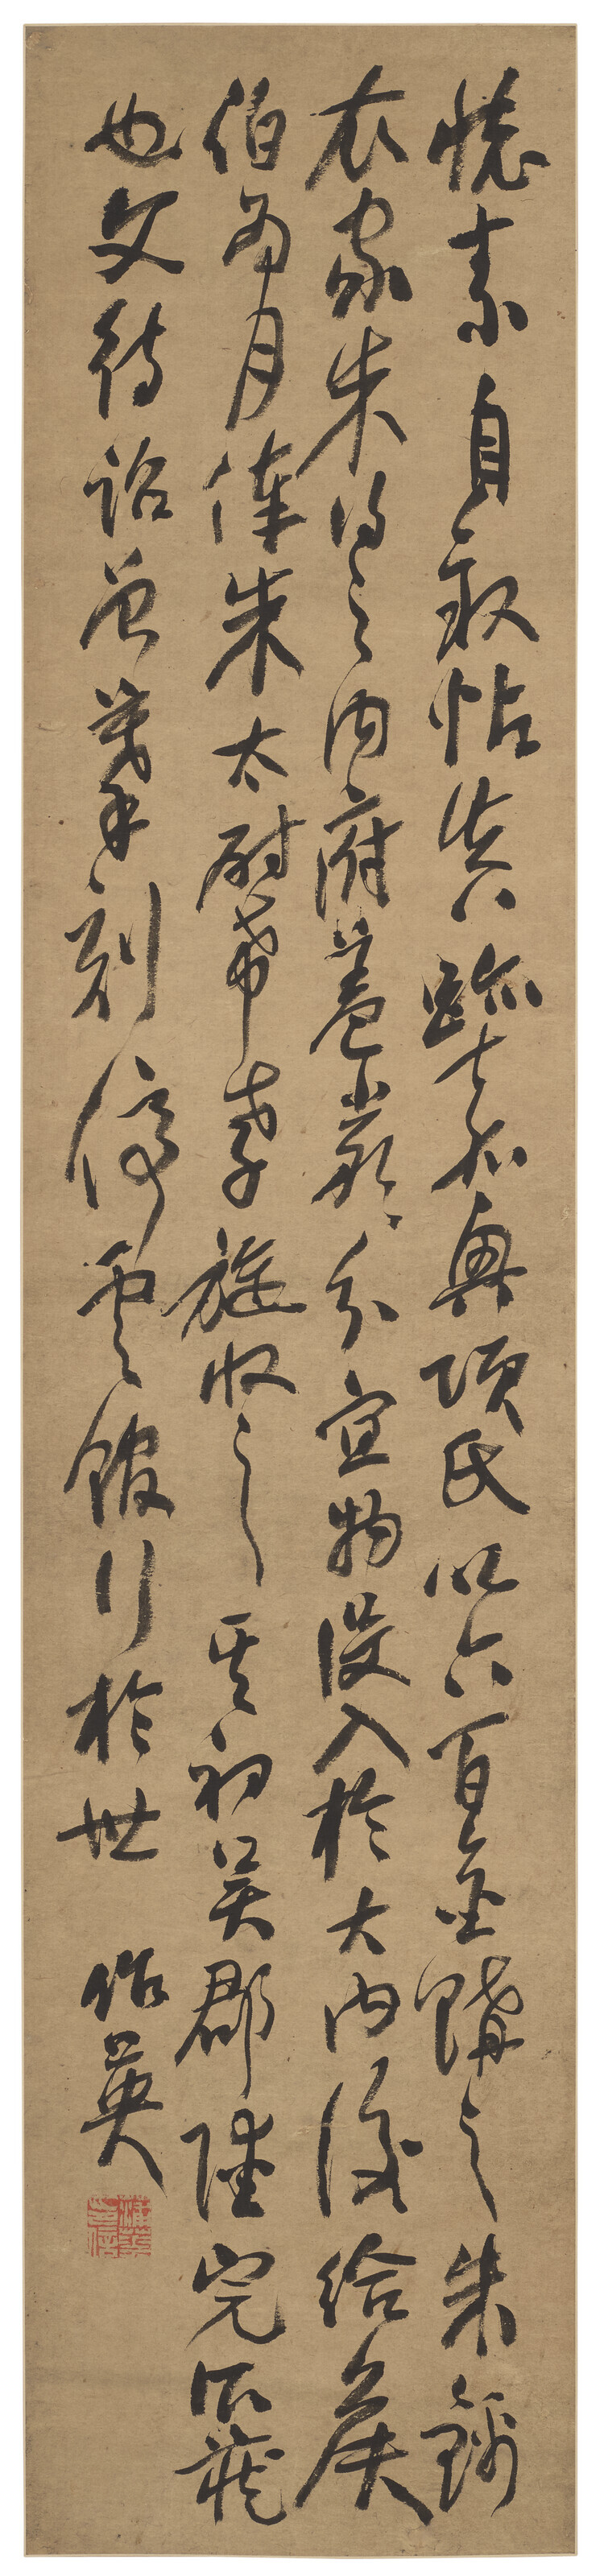 懷素自敘帖真跡嘉興項氏以六百金購之朱錦
衣家朱得之內府蓋嚴分宜物沒入於大內後給侯
伯為月俸朱太尉希孝旋收之其初吳郡陸完所藏
也文待詔曾摹刻停雲館行於世 作英